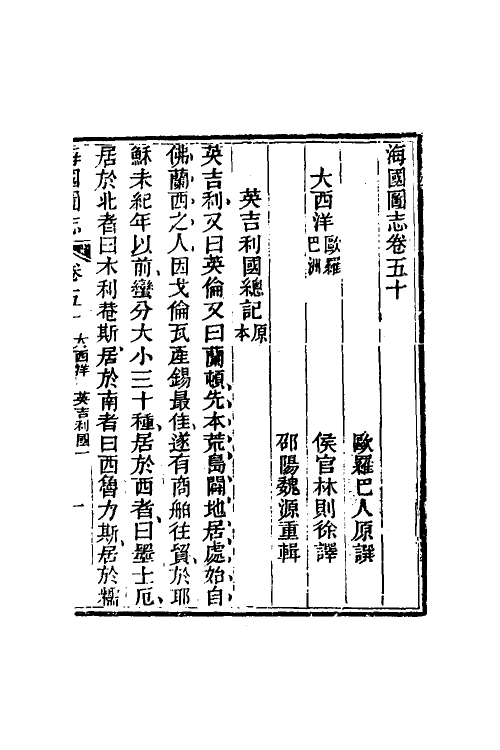 海國圖志卷五十
歐羅巴人原譔
大西洋歐羅巴洲
侯官林則徐譯
邵陽魏源重輯
英吉利國總記原本
英吉利又曰英倫又曰蘭頓先本荒島闢地居處始自
佛蘭西之人因戈倫瓦產錫最佳遂有商舶往貿於耶
穌未紀年以前蠻分大小三十種居於西者曰墨士厄
居於北者曰木利菴斯居於南者曰西魯力斯居於糯
海國圖志 卷五十 大西洋 英吉利國一 一